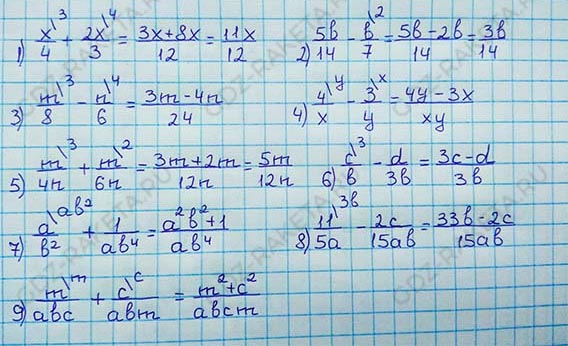 1) x\3/4 + 2x\4/3 = 3x+8x/12 = 11x/12 2) 5b/14 - b\2/7 = 5b-2b/14 = 3b/14
3) m\3/8 - n\4/6 = 3m-4n/24 4) 4\y/x - 3\x/y = 4y-3x/xy
5) m\3/4n + m\2/6n = 3m+2m/12n = 5m/12n 6) c\3/b - d/3b = 3c-d/3b
7) a\ab²/b² + 1/ab⁴ = a²b²+1/ab⁴ 8) 11\3b/5a - 2c/15ab = 33b-2c/15ab
9) m\m/abc + c\c/abm = m²+c²/abcm
GDZ-RAKETA.RU